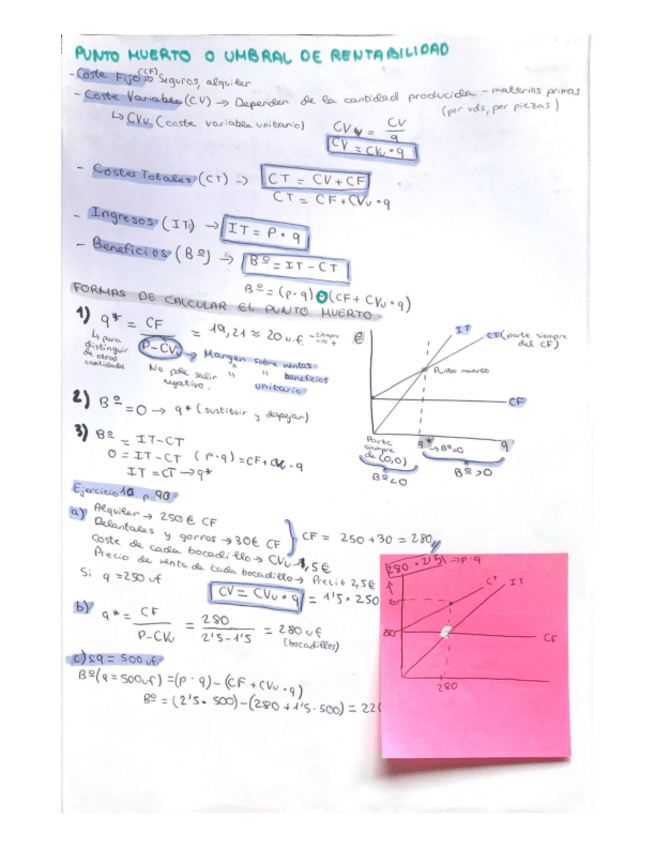 PUNTO MUERTO O UMBRAL DE RENTABILIDAD
- Coste Fijo (CF) => Seguros, alquiler
- Coste Variable (CV) → Dependen de la cantidad producida - materias primas
(por uds, por piezas)
↳ CVu (coste variable unitario) CVu = CV/q
CV = CVu · q
- Costes Totales (CT) => CT = CV + CF
CT = CF + CVu · q
- Ingresos (IT) → IT = P · q
- Beneficios (Bº) → Bº = IT - CT
Bº = (p · q) - (CF + CVu · q)
FORMAS DE CALCULAR EL PUNTO MUERTO
1) q* = CF / P-CVu = 19,21 ≈ 20 u.f. - siempre
↳ para distinguir de otras cantidades
→ Margen sobre ventas
" " beneficios
" unitario
No puede salir negativo.
2) Bº = 0 → q* (sustituir y despejar)
3) Bº = IT - CT
0 = IT - CT (p · q) = CF + CVu · q
IT = CT → q*
€
IT
CT (parte siempre del CF)
Punto muerto
CF
Parte siempre de (0,0)
q*
→ Bº=0
q
Bº<0
Bº>0
Ejercicio 10 p. 90
a) Alquiler → 250 € CF
Delantales y gorros → 30€ CF
CF = 250 + 30 = 280
Coste de cada bocadillo → CVu → 1,5€
Precio de venta de cada bocadillo → Precio 2,5€
Si q = 250 uf
CV = CVu · q = 1'5 · 250
b) q* = CF / P-CVu = 280 / 2'5-1'5 = 280 uf
(bocadillos)
c) Si q = 500 uf
Bº (q = 500uf) = (p · q) - (CF + CVu · q)
Bº = (2'5 · 500) - (280 + 1'5 · 500) = 220
280 · 2'5 → p · q
CT
IT
280
CF
280